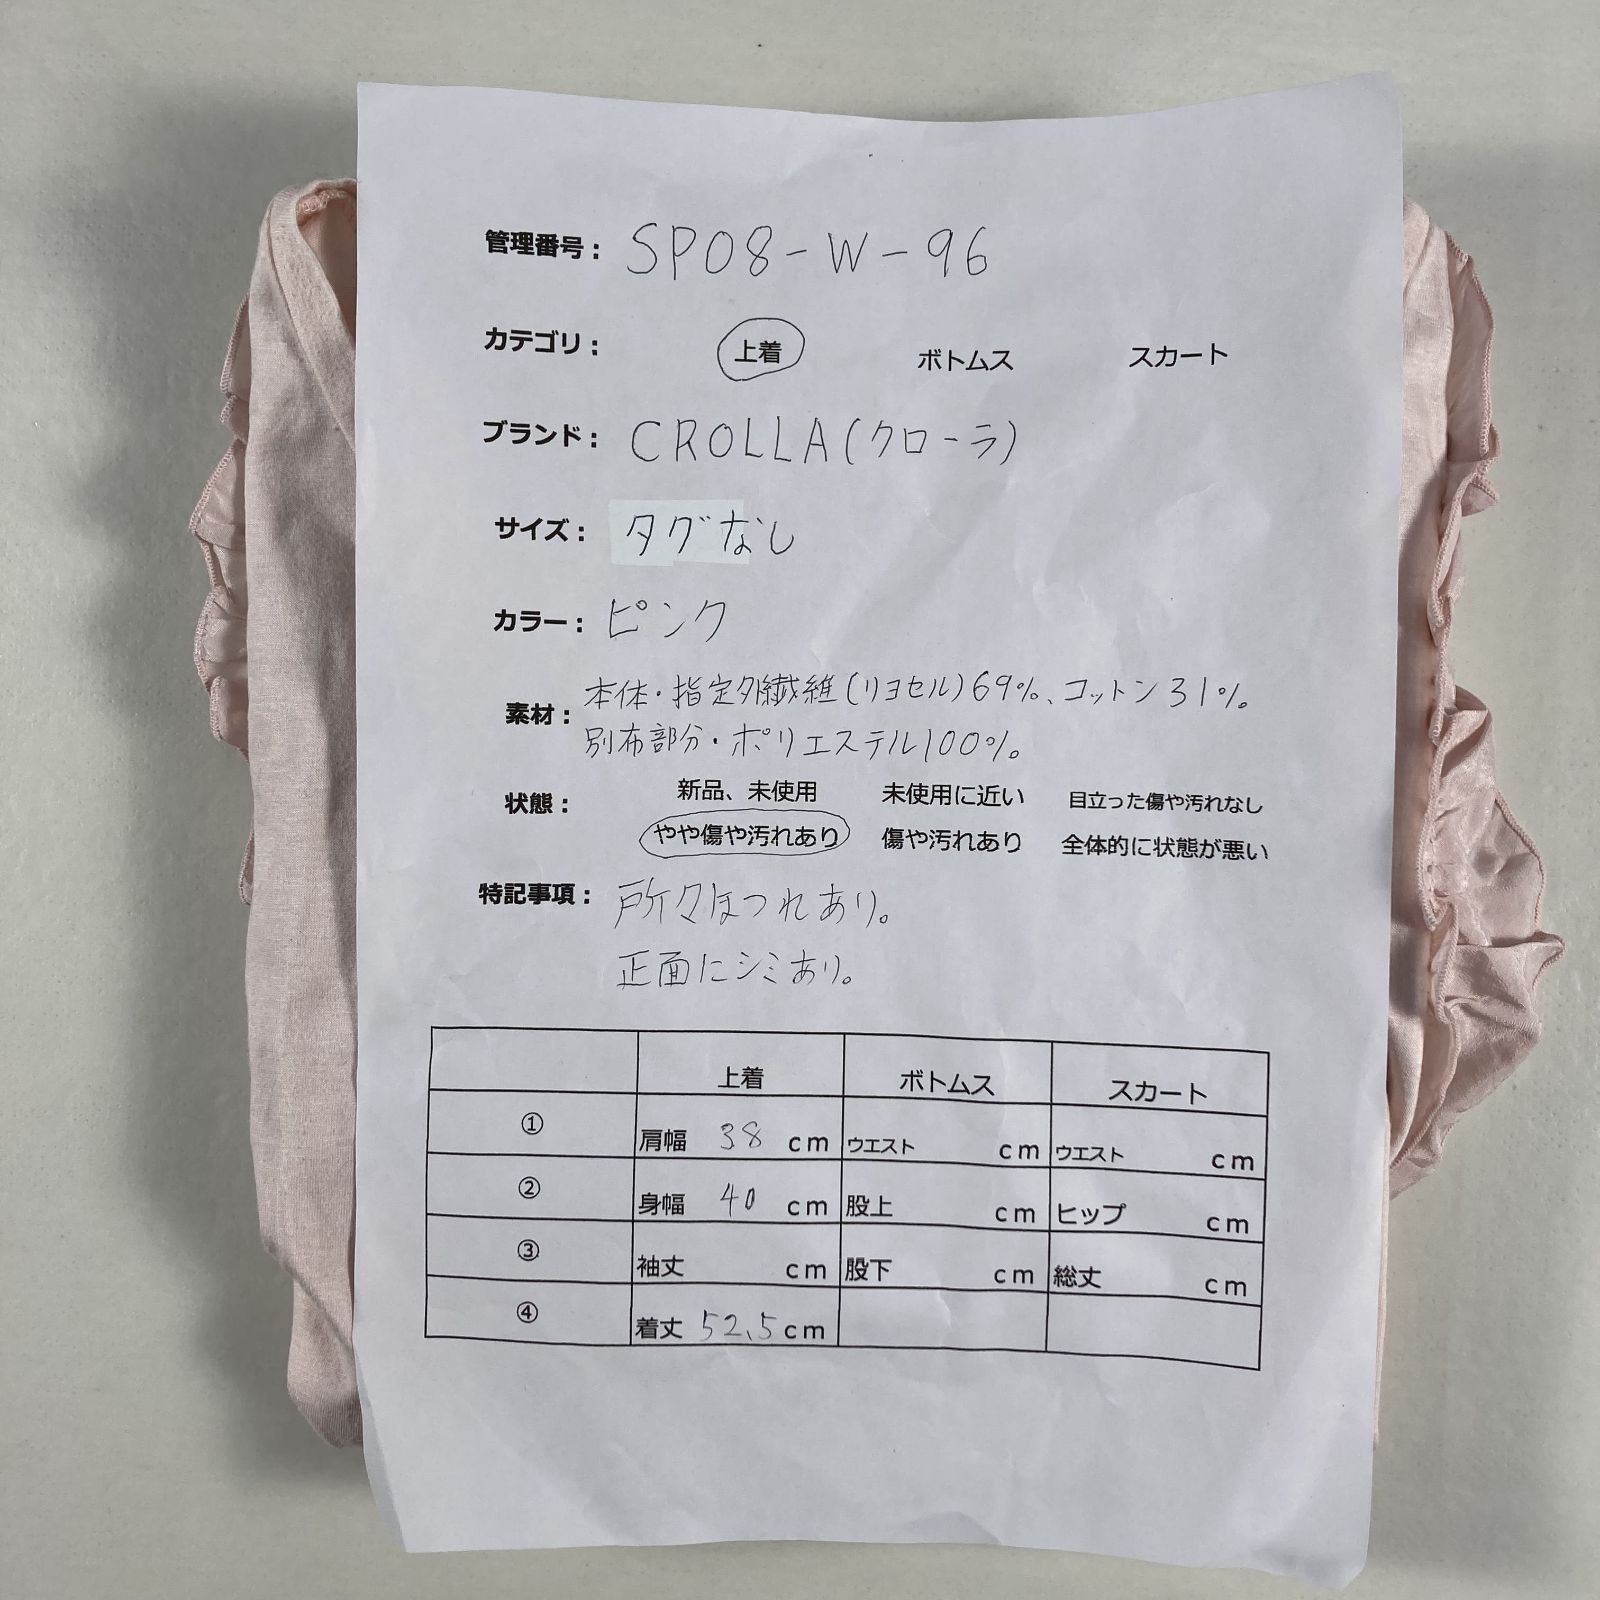 管理番号： SP08-W-96
カテゴリ： 上着 ボトムス スカート
ブランド： CROLLA(クローラ)
サイズ： タグなし
カラー： ピンク
素材： 本体・指定外繊維(リヨセル)69%、コットン31%。
別布部分・ポリエステル100%。
状態： 新品、未使用 未使用に近い 目立った傷や汚れなし
やや傷や汚れあり 傷や汚れあり 全体的に状態が悪い
特記事項： 所々ほつれあり。
正面にシミあり。
上着 ボトムス スカート
① 肩幅 38 cm ウエスト cm ウエスト cm
② 身幅 40 cm 股上 cm ヒップ cm
③ 袖丈 cm 股下 cm 総丈 cm
④ 着丈 52.5 cm